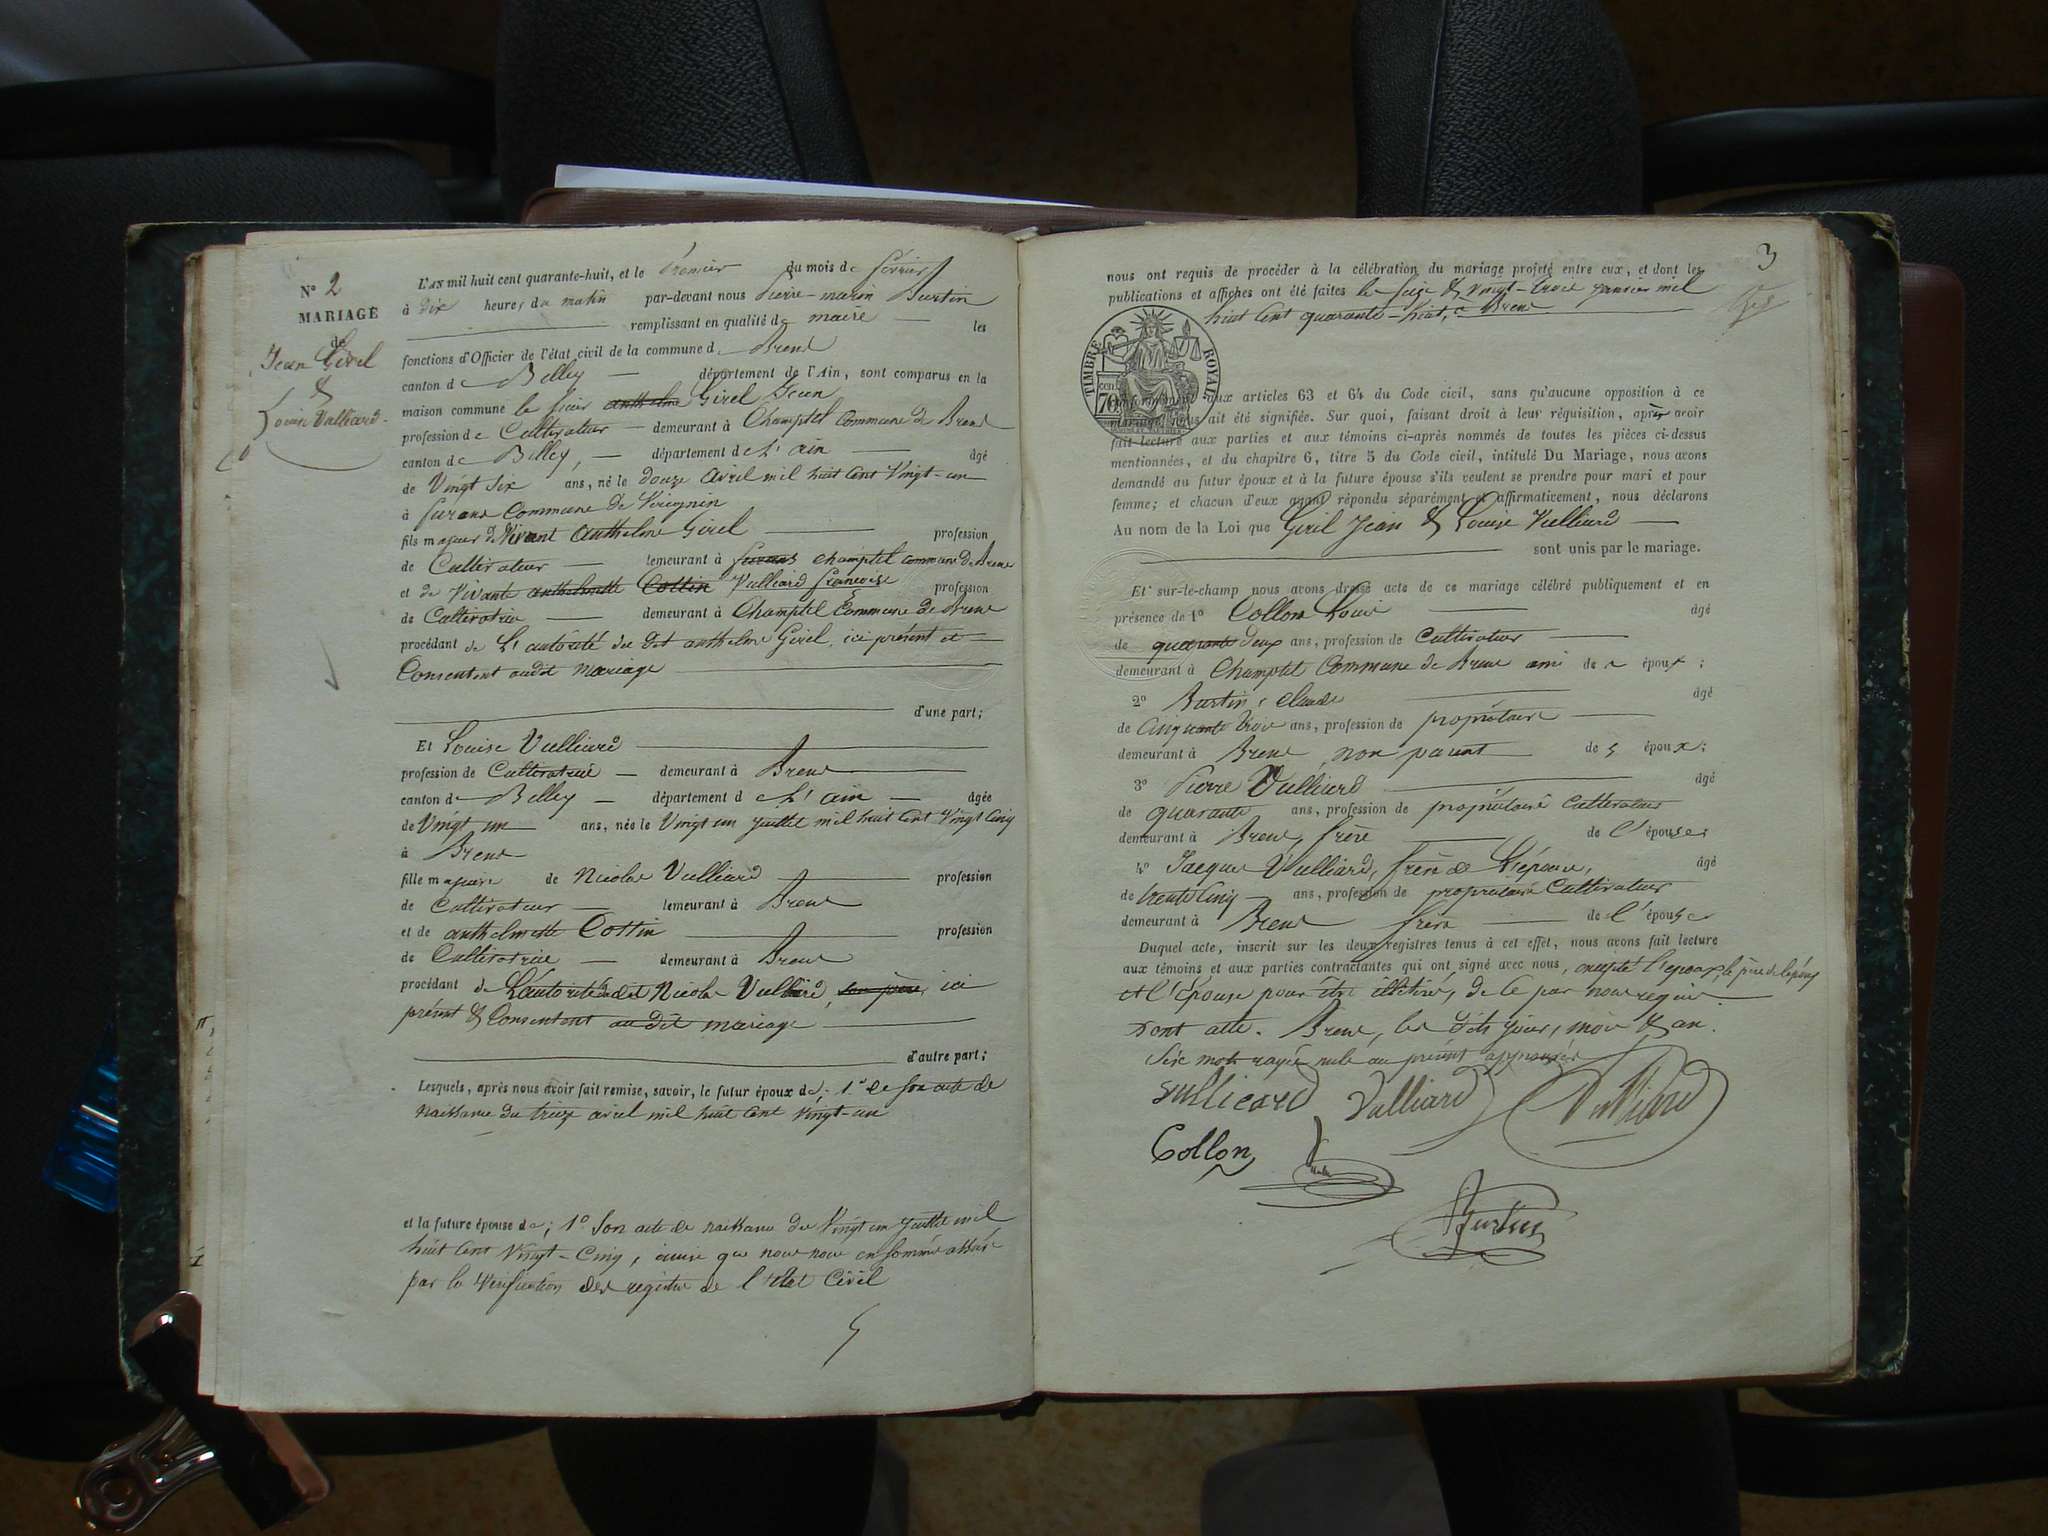 N° 2
MARIAGE
de
Jean Girel
&
Louise Vulliard
L'AN mil huit cent quarante-huit, et le Premier du mois de février
à dix heures du matin par-devant nous Pierre-marin Burtin
remplissant en qualité de maire les
fonctions d'Officier de l'état civil de la commune de Brens
canton de Belley département de l'Ain, sont comparus en la
maison commune le sieur anthelme Girel Jean
profession de Cultivateur demeurant à Champtel Commune de Brens
canton de Belley, département de L'ain âgé
de Vingt six ans, né le douze avril mil huit Cent Vingt-un
à Commune de Virignin
fils majeur de Vivant Anthelme Girel profession
de Cultivateur demeurant à champtel commune de Brens
et de Vivante anthelmette Cottin Vulliard françoise profession
de Cultivatrice demeurant à Champtel Commune de Brens
procédant de L'autorité du dit anthelme Girel, ici présent et
Consentent audit mariage
d'une part;
Et Louise Vulliard
profession de Cultivatrice demeurant à Brens
canton de Belley département de L'ain âgée
de Vingt un ans, née le Vingt un juillet mil huit Cent Vingt Cinq
à Brens
fille majeure de Nicolas Vulliard profession
de Cultivateur demeurant à Brens
et de anthelmette Cottin profession
de Cultivatrice demeurant à Brens
procédant de L'autorité du dit Nicolas Vulliard, son père, ici
présent & Consentent au dit mariage
d'autre part;
Lesquels, après nous avoir fait remise, savoir, le futur époux de; 1° de son acte de
naissance du treize avril mil huit cent vingt-un
et la future épouse de; 1° Son acte de naissance du Vingt un juillet mil
huit Cent Vingt-Cinq, que nous nous en sommes assuré
par la Vérification des registres de l'état Civil
3
nous ont requis de procéder à la célébration du mariage projeté entre eux, et dont les
publications et affiches ont été faites les seize & vingt-trois janvier mil
huit Cent quarante-huit, à Brens
TIMBRE ROYAL
70 cen.
conformément aux articles 63 et 64 du Code civil, sans qu'aucune opposition à ce
mariage nous ait été signifiée. Sur quoi, faisant droit à leur réquisition, après avoir
fait lecture aux parties et aux témoins ci-après nommés de toutes les pièces ci-dessus
mentionnées, et du chapitre 6, titre 5 du Code civil, intitulé Du Mariage, nous avons
demandé au futur époux et à la future épouse s'ils veulent se prendre pour mari et pour
femme; et chacun d'eux ayant répondu séparément et affirmativement, nous déclarons
Au nom de la Loi que Girel Jean & Louise Vulliard
sont unis par le mariage.
Et sur-le-champ nous avons dressé acte de ce mariage célébré publiquement et en
présence de 1° Collon Louis âgé
de quarante deux ans, profession de Cultivateur
demeurant à Champtel Commune de Brens ami de l'époux;
2° Burtin, claude âgé
de Cinquante trois ans, profession de propriétaire
demeurant à Brens, non parent des époux;
3° Pierre Vulliard âgé
de quarante ans, profession de propriétaire Cultivateur
demeurant à Brens, frère de l'épouse
4° Jacque Vulliard, frère de L'épouse, âgé
de trente Cinq ans, profession de propriétaire Cultivateur
demeurant à Brens frère de l'épouse
Duquel acte, inscrit sur les deux registres tenus à cet effet, nous avons fait lecture
aux témoins et aux parties contractantes qui ont signé avec nous, excepté l'époux, le père de l'époux
et l'épouse pour être illétirés, de ce par nous requis.
Dont acte. Brens, les dits jour, mois & an.
mots rayés nuls au présent approuvés
Vulliard Vulliard Vulliard
Collon
Burtin